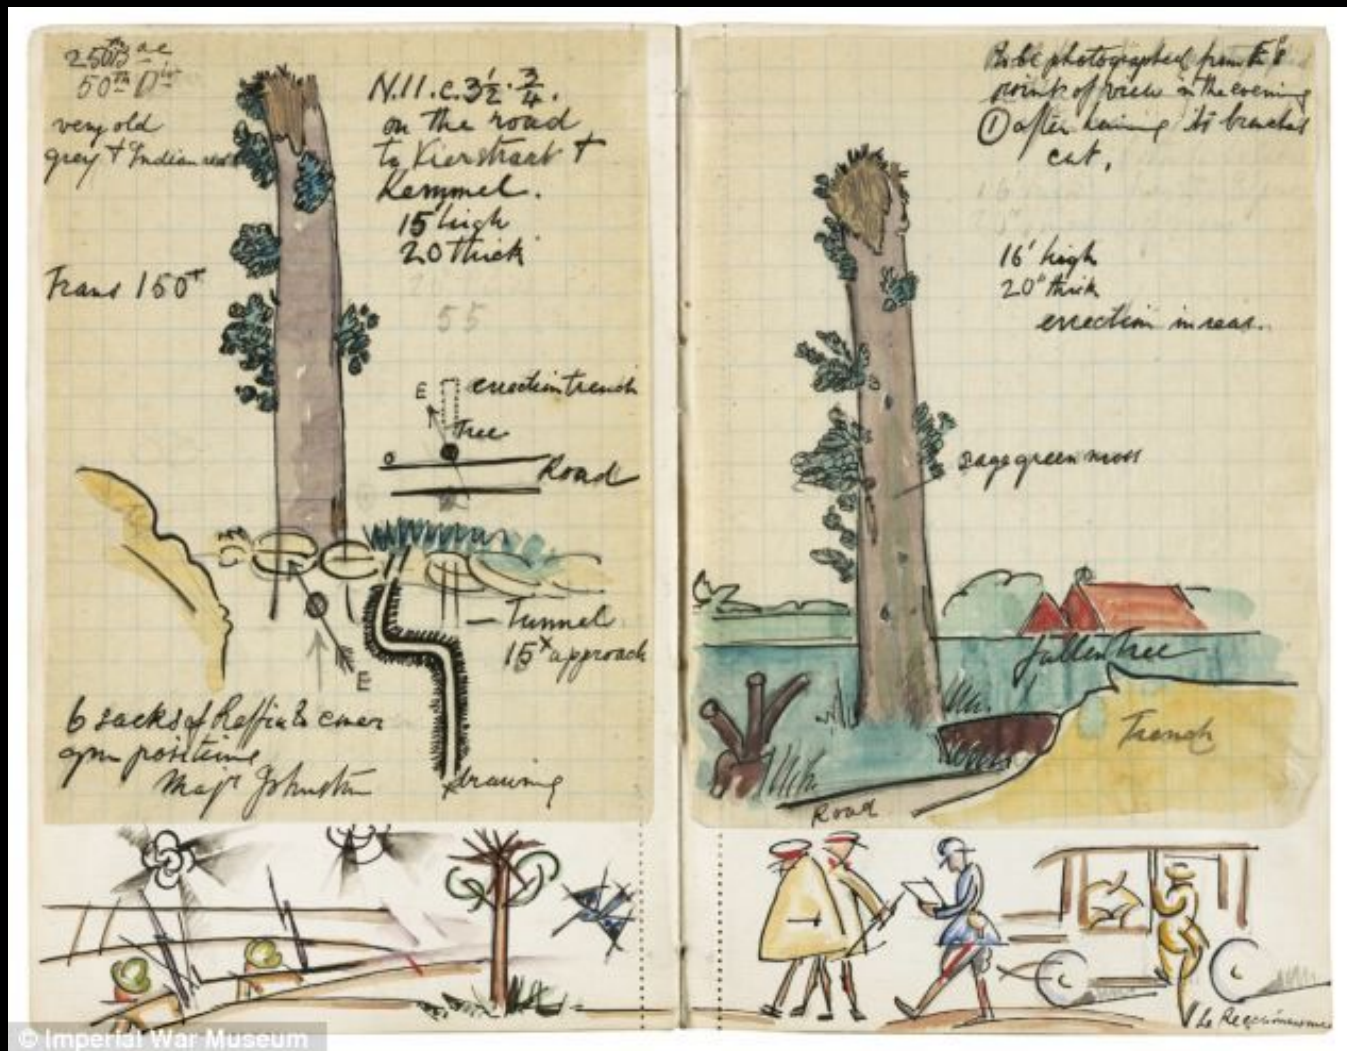 250th Bde
50th Div
very old
grey + Indian red
Trans 150x
N.11.c.3½.¾.
on the road
to Vierstraat +
Kemmel.
15' high
20 thick
55
E
erection trench
Tree
Road
Tunnel
15x approach
E
6 sacks of Raffia to cover
gun positions
Majr Johnston
drawing
to be photographed from
point of view in the evening
① after having its branches
cut,
16' high
20" thick
erection in rear.
sage green moss
fallen Tree
Trench
Road
© Imperial War Museum